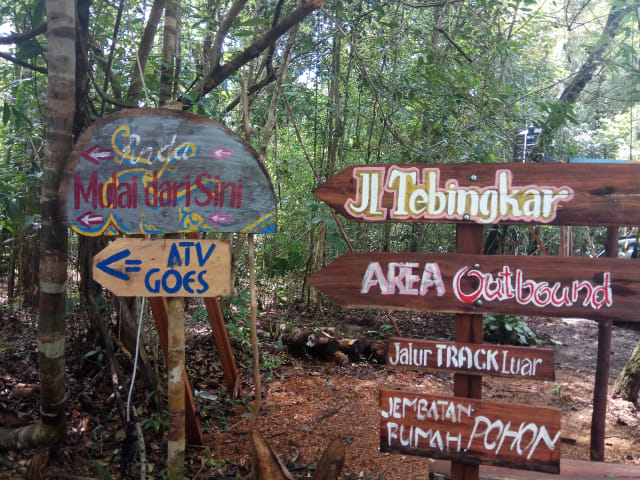 Mulai dari Sini
ATV
<= GOES
Jl Tebingkar
AREA Outbound
Jalur TRACK Luar
JEMBATAN
RUMAH. POHON